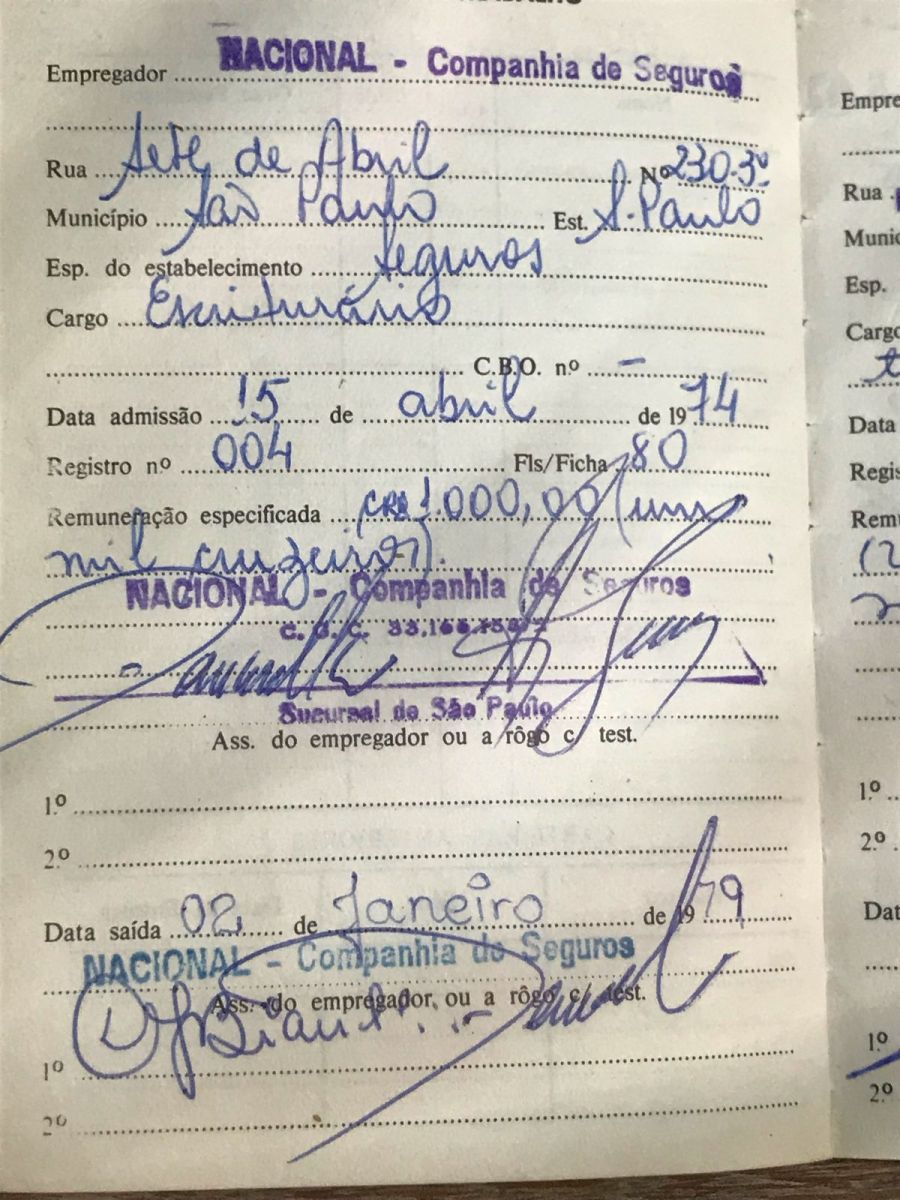 Empregador NACIONAL - Companhia de Seguros
Rua Sete de Abril Nº 230-3º
Município São Paulo Est. S. Paulo
Esp. do estabelecimento Seguros
Cargo Escriturário
C.B.O. nº -
Data admissão 15 de abril de 1974
Registro nº 004 Fls/Ficha 80
Remuneração especificada CR$ 1.000,00 (um
mil cruzeiros).
NACIONAL - Companhia de Seguros
C. G. C.
Sucursal de São Paulo
Ass. do empregador ou a rôgo c/ test.
1.º
2.º
Data saída 02 de Janeiro de 1979
NACIONAL - Companhia de Seguros
Ass. do empregador ou a rôgo c/ test.
1º
2º
Empre
Rua
Munic
Esp.
Cargo
Data
Regis
Remu
1.º
2.º
Dat
1º
2º